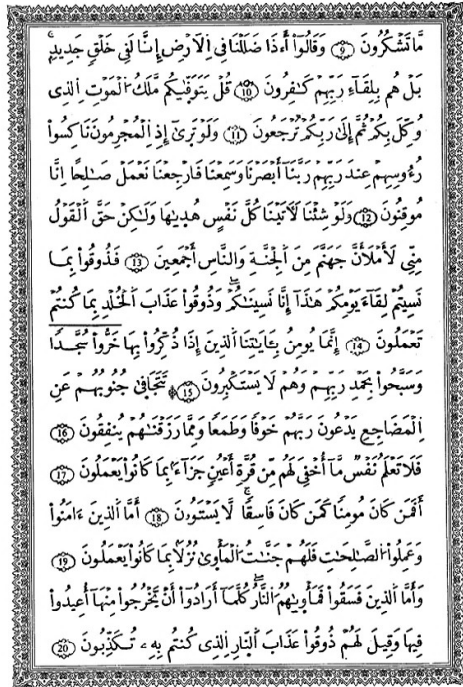 مَّا تَشْكُرُونَ ۝9 وَقَالُوٓا۟ أَ۟ذَا ضَلَلْنَا فِى اِ۬لَارْضِ إِنَّا لَفِى خَلْقٍ جَدِيدٍۢ
بَلْ هُم بِلِقَآءِ رَبِّهِمْ كَـٰفِرُونَ ۝10 قُلْ يَتَوَفّ۪يٰكُم مَّلَكُ اُ۬لْمَوْتِ اِ۬لذِى
وُكِّلَ بِكُمْ ثُمَّ إِلَىٰ رَبِّكُمْ تُرْجَعُونَ ۝11 وَلَوْ تَرٜىٰٓ إِذِ اِ۬لْمُجْرِمُونَ نَاكِسُوا۟
رُءُوسِهِمْ عِندَ رَبِّهِمْ رَبَّنَآ أَبْصَرْنَا وَسَمِعْنَا فَارْجِعْنَا نَعْمَلْ صَـٰلِحًا اِنَّا
مُوقِنُونَ ۝12 وَلَوْ شِئْنَا لَأٓتَيْنَا كُلَّ نَفْسٍ هُد۪يٰهَا وَلَـٰكِنْ حَقَّ اَ۬لْقَوْلُ
مِنِّى لَأَمْلَأَنَّ جَهَنَّمَ مِنَ اَ۬لْجِنَّةِ وَالنَّاسِ أَجْمَعِينَ ۝13 فَذُوقُوا۟ بِمَا
نَسِيتُمْ لِقَآءَ يَوْمِكُمْ هَـٰذَآ إِنَّا نَسِينَـٰكُمْ وَذُوقُوا۟ عَذَابَ اَ۬لْخُلْدِ بِمَا كُنتُمْ
تَعْمَلُونَ ۝14 إِنَّمَا يُومِنُ بِـَٔايَـٰتِنَا اَ۬لذِينَ إِذَا ذُكِّرُوا۟ بِهَا خَرُّوا۟ سُجَّدًا
وَسَبَّحُوا۟ بِحَمْدِ رَبِّهِمْ وَهُمْ لَا يَسْتَكْبِرُونَ۩ ۝15 تَتَجَافَىٰ جُنُوبُهُمْ عَنِ
اِ۬لْمَضَاجِعِ يَدْعُونَ رَبَّهُمْ خَوْفًا وَطَمَعًا وَمِمَّا رَزَقْنَـٰهُمْ يُنفِقُونَ ۝16
فَلَا تَعْلَمُ نَفْسٌ مَّآ أُخْفِىَ لَهُم مِّن قُرَّةِ أَعْيُنٍ جَزَآءًۢ بِمَا كَانُوا۟ يَعْمَلُونَ ۝17
أَفَمَن كَانَ مُومِنًا كَمَن كَانَ فَاسِقًا لَّا يَسْتَوُۥنَ ۝18 أَمَّا اَ۬لذِينَ ءَامَنُوا۟
وَعَمِلُوا۟ اُ۬لصَّـٰلِحَـٰتِ فَلَهُمْ جَنَّـٰتُ اُ۬لْمَأْوٜىٰ نُزُلًۢا بِمَا كَانُوا۟ يَعْمَلُونَ ۝19
وَأَمَّا اَ۬لذِينَ فَسَقُوا۟ فَمَأْو۪يٰهُمُ اُ۬لنَّارُ كُلَّمَآ أَرَادُوٓا۟ أَنْ يَّخْرُجُوا۟ مِنْهَآ أُعِيدُوا۟
فِيهَا وَقِيلَ لَهُمْ ذُوقُوا۟ عَذَابَ اَ۬لنّ۪ارِ اِ۬لذِى كُنتُم بِهِۦ تُكَذِّبُونَ ۝20